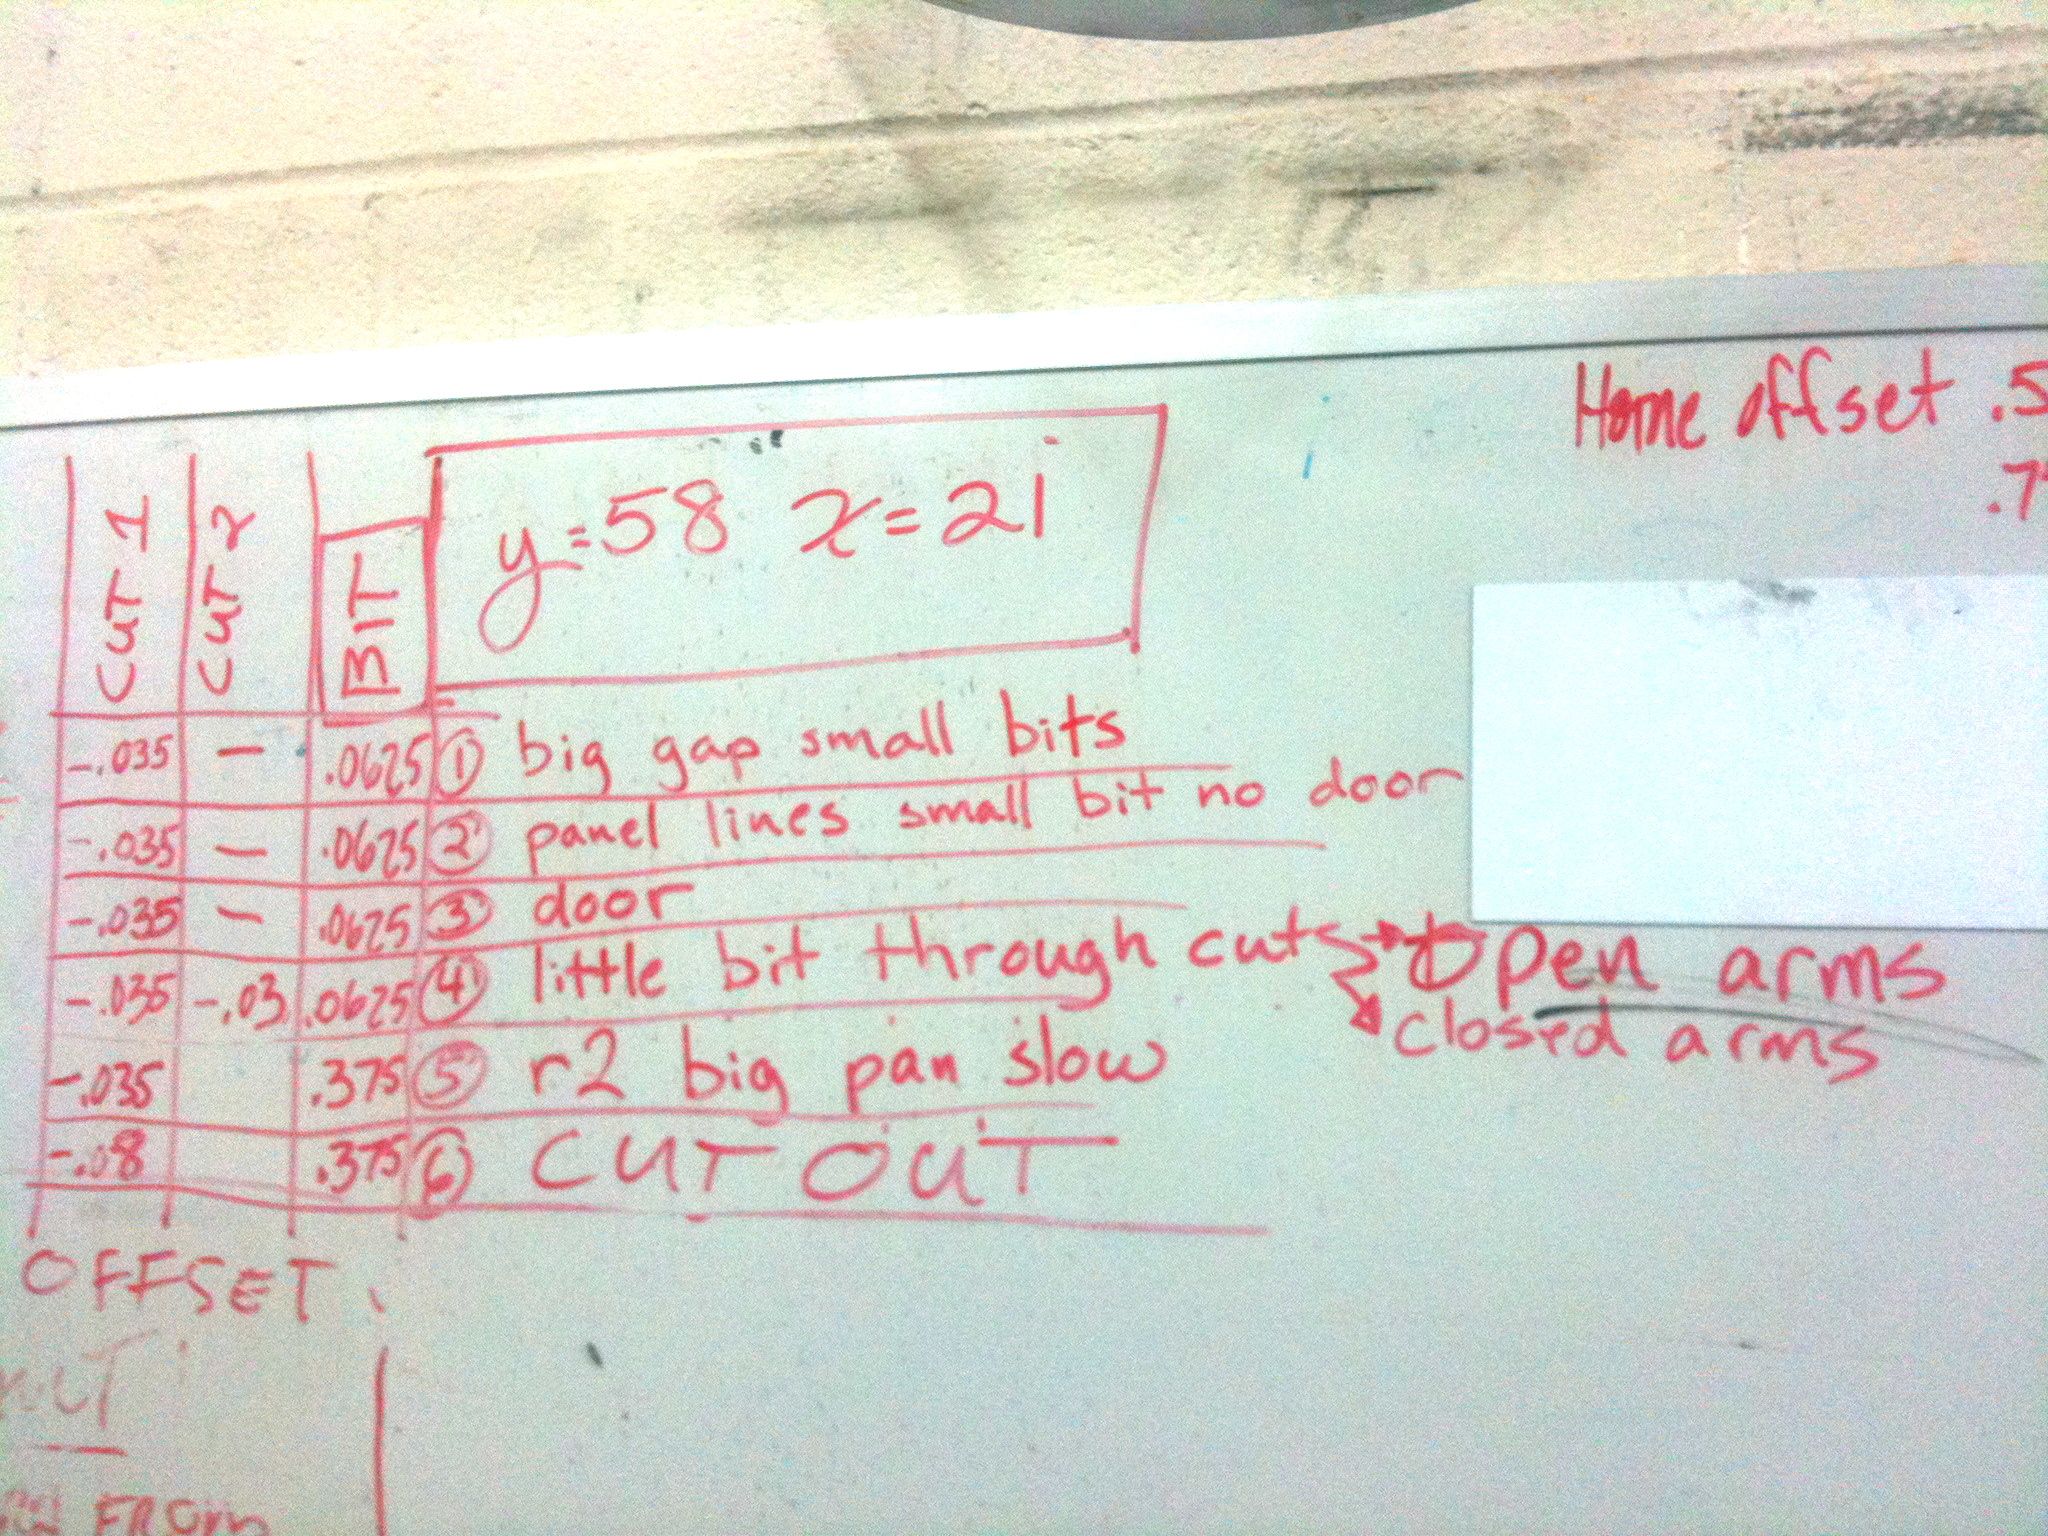 Home offset .5
.7
CUT 1 CUT 2 BIT
y=58 x=21
-.035 – .0625 ① big gap small bits
-.035 – .0625 ② panel lines small bit no door
-.035 – .0625 ③ door
-.035 -.03 .0625 ④ little bit through cuts → Open arms
closed arms
-.035 .375 ⑤ r2 big pan slow
-.08 .375 ⑥ CUT OUT
OFFSET
FROM